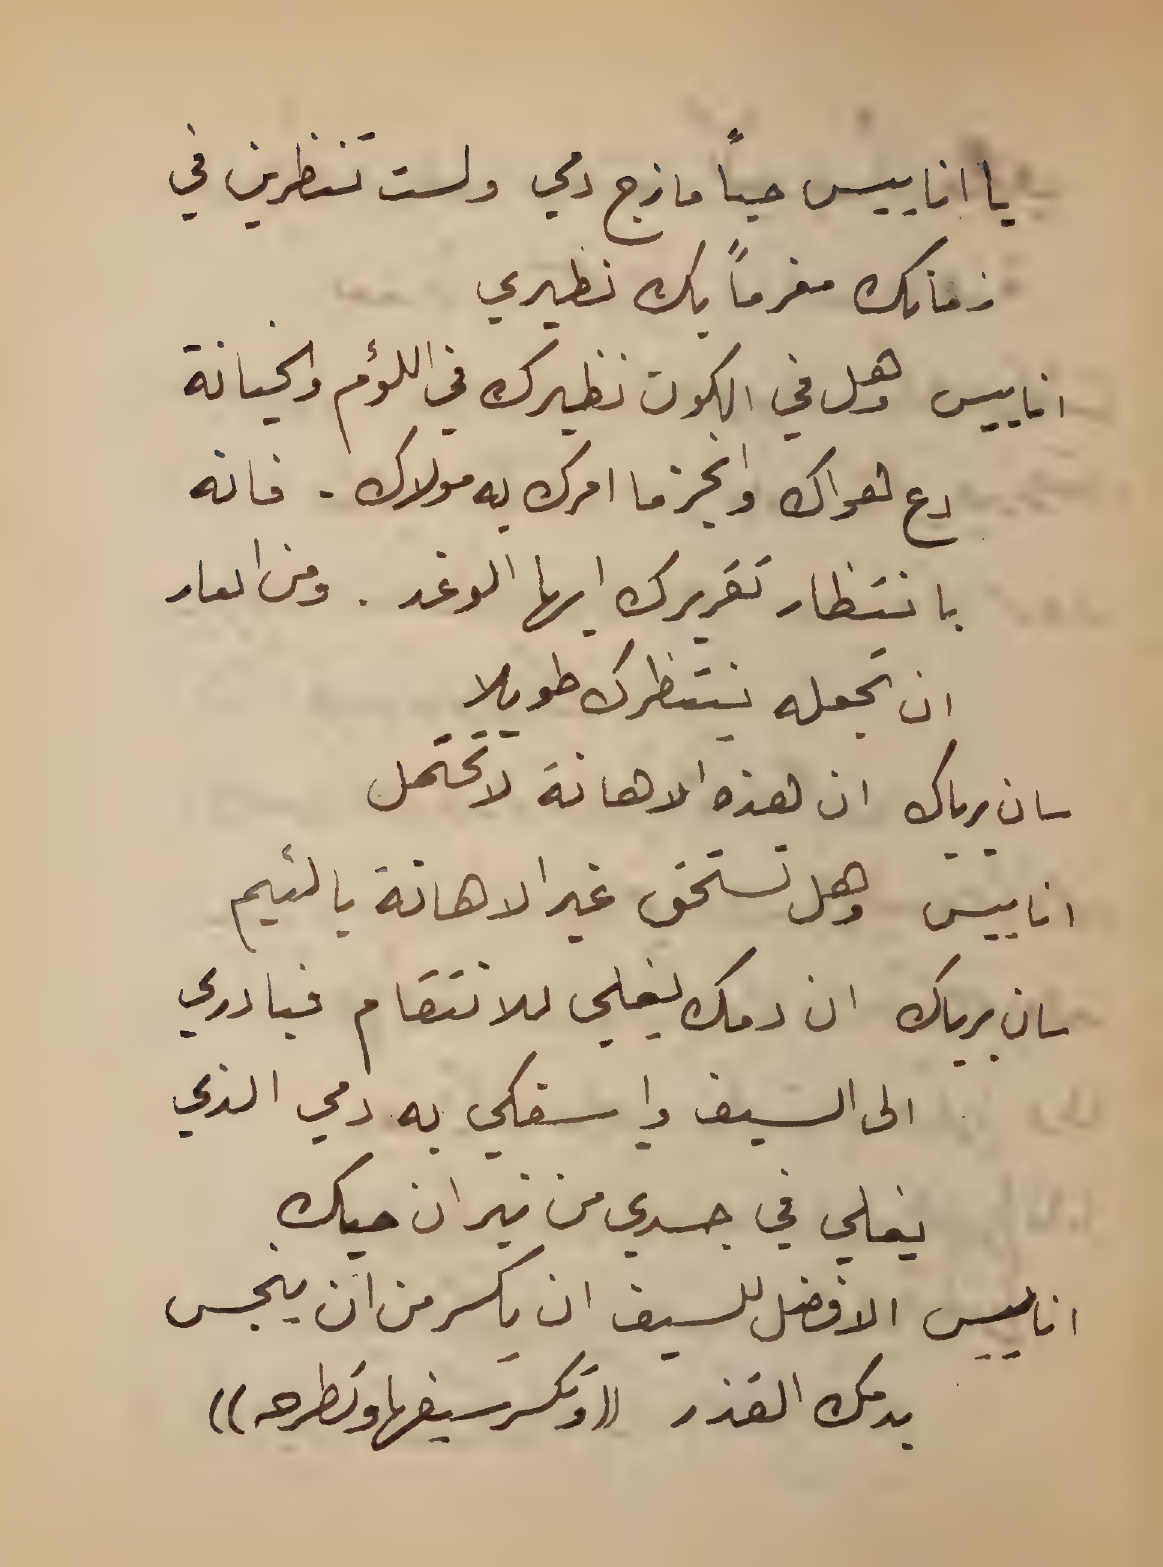 يا اناييس حباً مازج دمي ولست تنظرين في
زمانك مغرماً بك نظيري
اناييس وهل في الكون نظيرك في اللؤم والخيانة
دع هواك وانجز ما امرك به مولاك . فانه
بانتظار تقريرك ايها الوغد . ومن العار
ان تجعله ينتظرك طويلا
سان برياك ان هذه الاهانة لا تحتمل
اناييس وهل تستحق غير الاهانة يا لئيم
سان برياك ان دمك يغلي للانتقام فبادري
الى السيف واسفكي به دمي الذي
يغلي في جسدي من نيران حبك
اناييس الافضل للسيف ان يكسر من ان ينجس
بدمك القذر ((وتكسر سيفها وتطرحه))